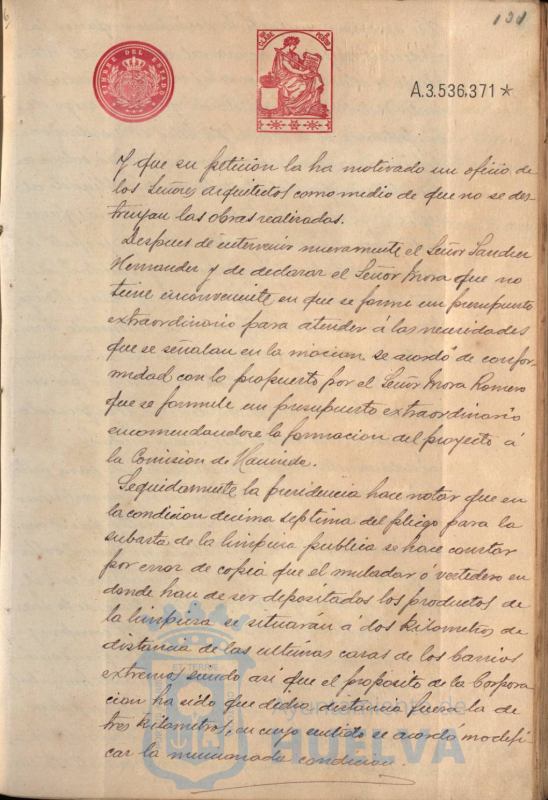 131
TIMBRE DEL ESTADO
A.3.536,371*
Y que su peticion la ha motivado un oficio de
los Señores arquitectos como medio de que no se des
truyan las obras realizadas.
Despues de intervenir nuevamente el Señor Sanchez
Hernandez y de declarar el Señor Mora que no
tiene inconveniente en que se forme un presupuesto
extraordinario para atender á las necesidades
que se señalan en la mocion se acordó de confor-
midad con lo propuesto por el Señor Mora Romero
que se formule un presupuesto extraordinario
encomendandose la formacion del proyecto á
la Comision de Hacienda.
Seguidamente la presidencia hace notar que en
la condicion decima septima del pliego para la
subasta de la limpieza publica se hace constar
por error de copia que el muladar ó vertedero en
donde han de ser depositados los productos de
la limpieza se situarán á dos kilometros de
distancia de las ultimas casas de los barrios
extremos siendo así que el proposito de la Corpora
cion ha sido que dicha distancia fuera la de
tres kilometros, en cuyo sentido se acordó modifi
car la mencionada condicion.
Ayuntamiento de
HUELVA